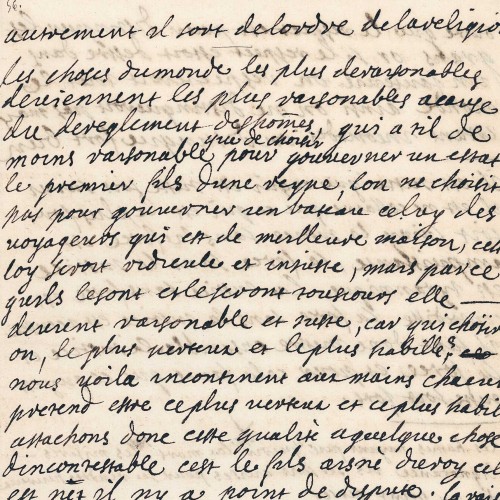 96.
autrement il sort de lordre de la religion
les choses du monde les plus deraisonables
deviennent les plus raisonables a cause
du dereglement des homes, qui a til de
moins raisonable que de choisir pour gouverner un estat
le premier fils dune reyne, lon ne choisit
pas pour gouverner un bateau celuy des
voyageurs qui est de meilleure maison, cette
loy seroit ridicule et iniuste, mais parce
quils le sont et le seront tousiours elle
devient raisonable et iuste, car qui choisira
on, le plus verteux et le plus habille?
nous voila incontinent aux mains chacun
pretend estre ce plus verteux et ce plus habille
attachons donc cette qualité a quelque chose
dincontestable cest le fils aisné du roy cela
est net il ny a point de dispute